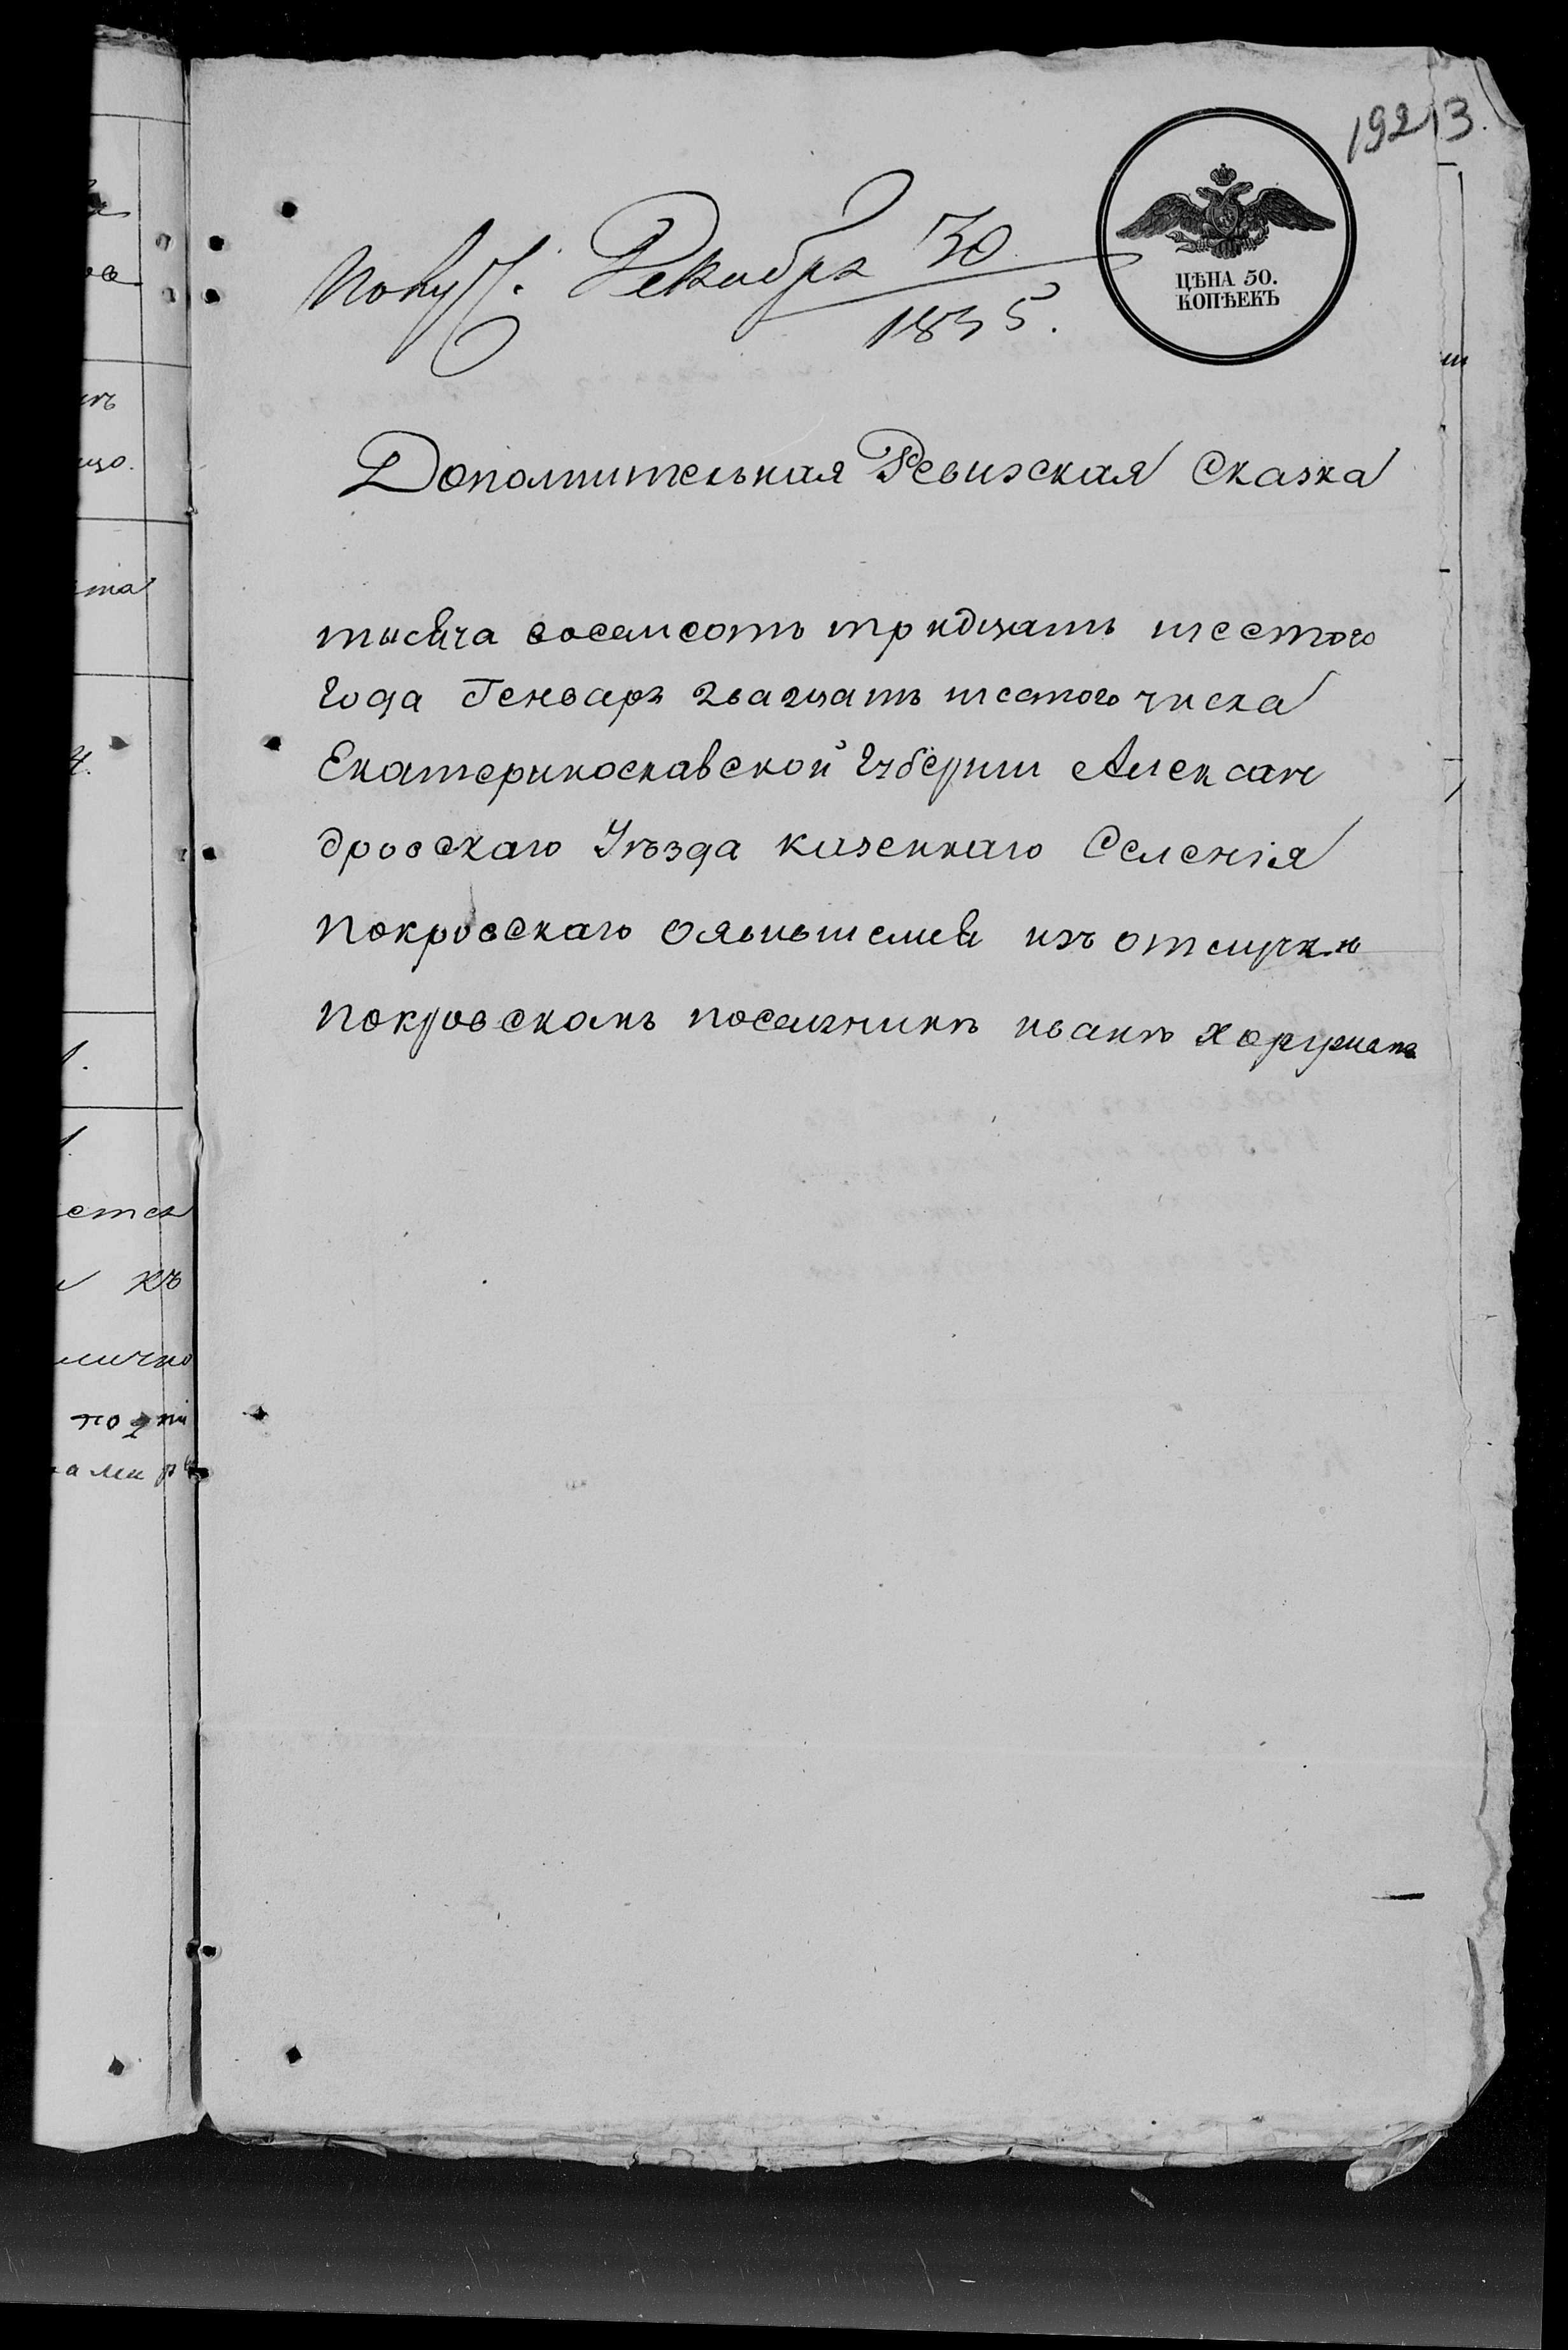 192 13.
ЦѢНА 50.
КОПѢЕКЪ
Декабря 30
1835.
Дополнительная Ревизская Сказка
тысяча восемсотъ тридцать шестого
года Генваря двадцать шестого числа
Екатеринославской Губернии Алексан
дровскаго Уѣзда казеннаго Селенія
Покровскаго оявившемся изъ отлучки
Покровскомъ поселянинѣ иванѣ